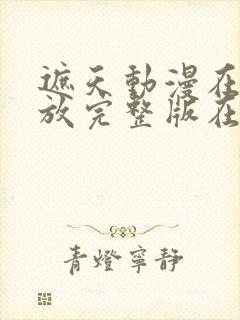 遮天動漫在
放完整版在
青燈寧靜